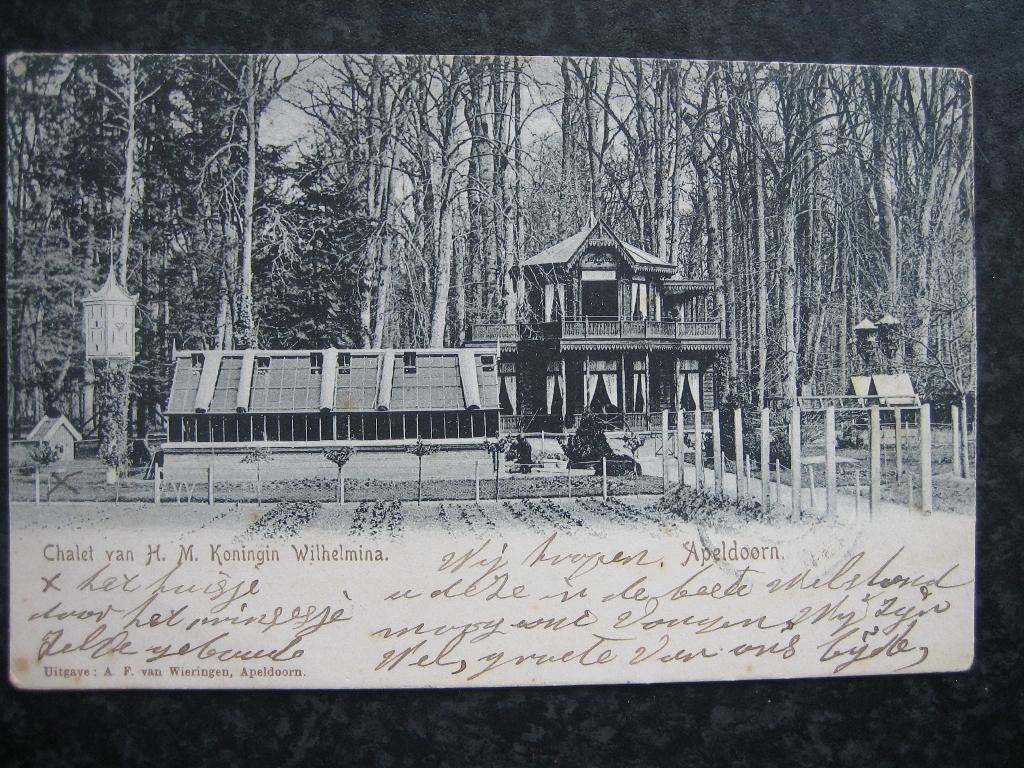 Chalet van H. M. Koningin Wilhelmina.
Apeldoorn.
x het huisje
door het prinsesje
Zelde geboude
Wij hoopen
u deze in de beste Welstand
mogen ont Vangen, Wij Zijn
Wel, groete Van ons bijde,
Uitgave: A. F. van Wieringen, Apeldoorn.